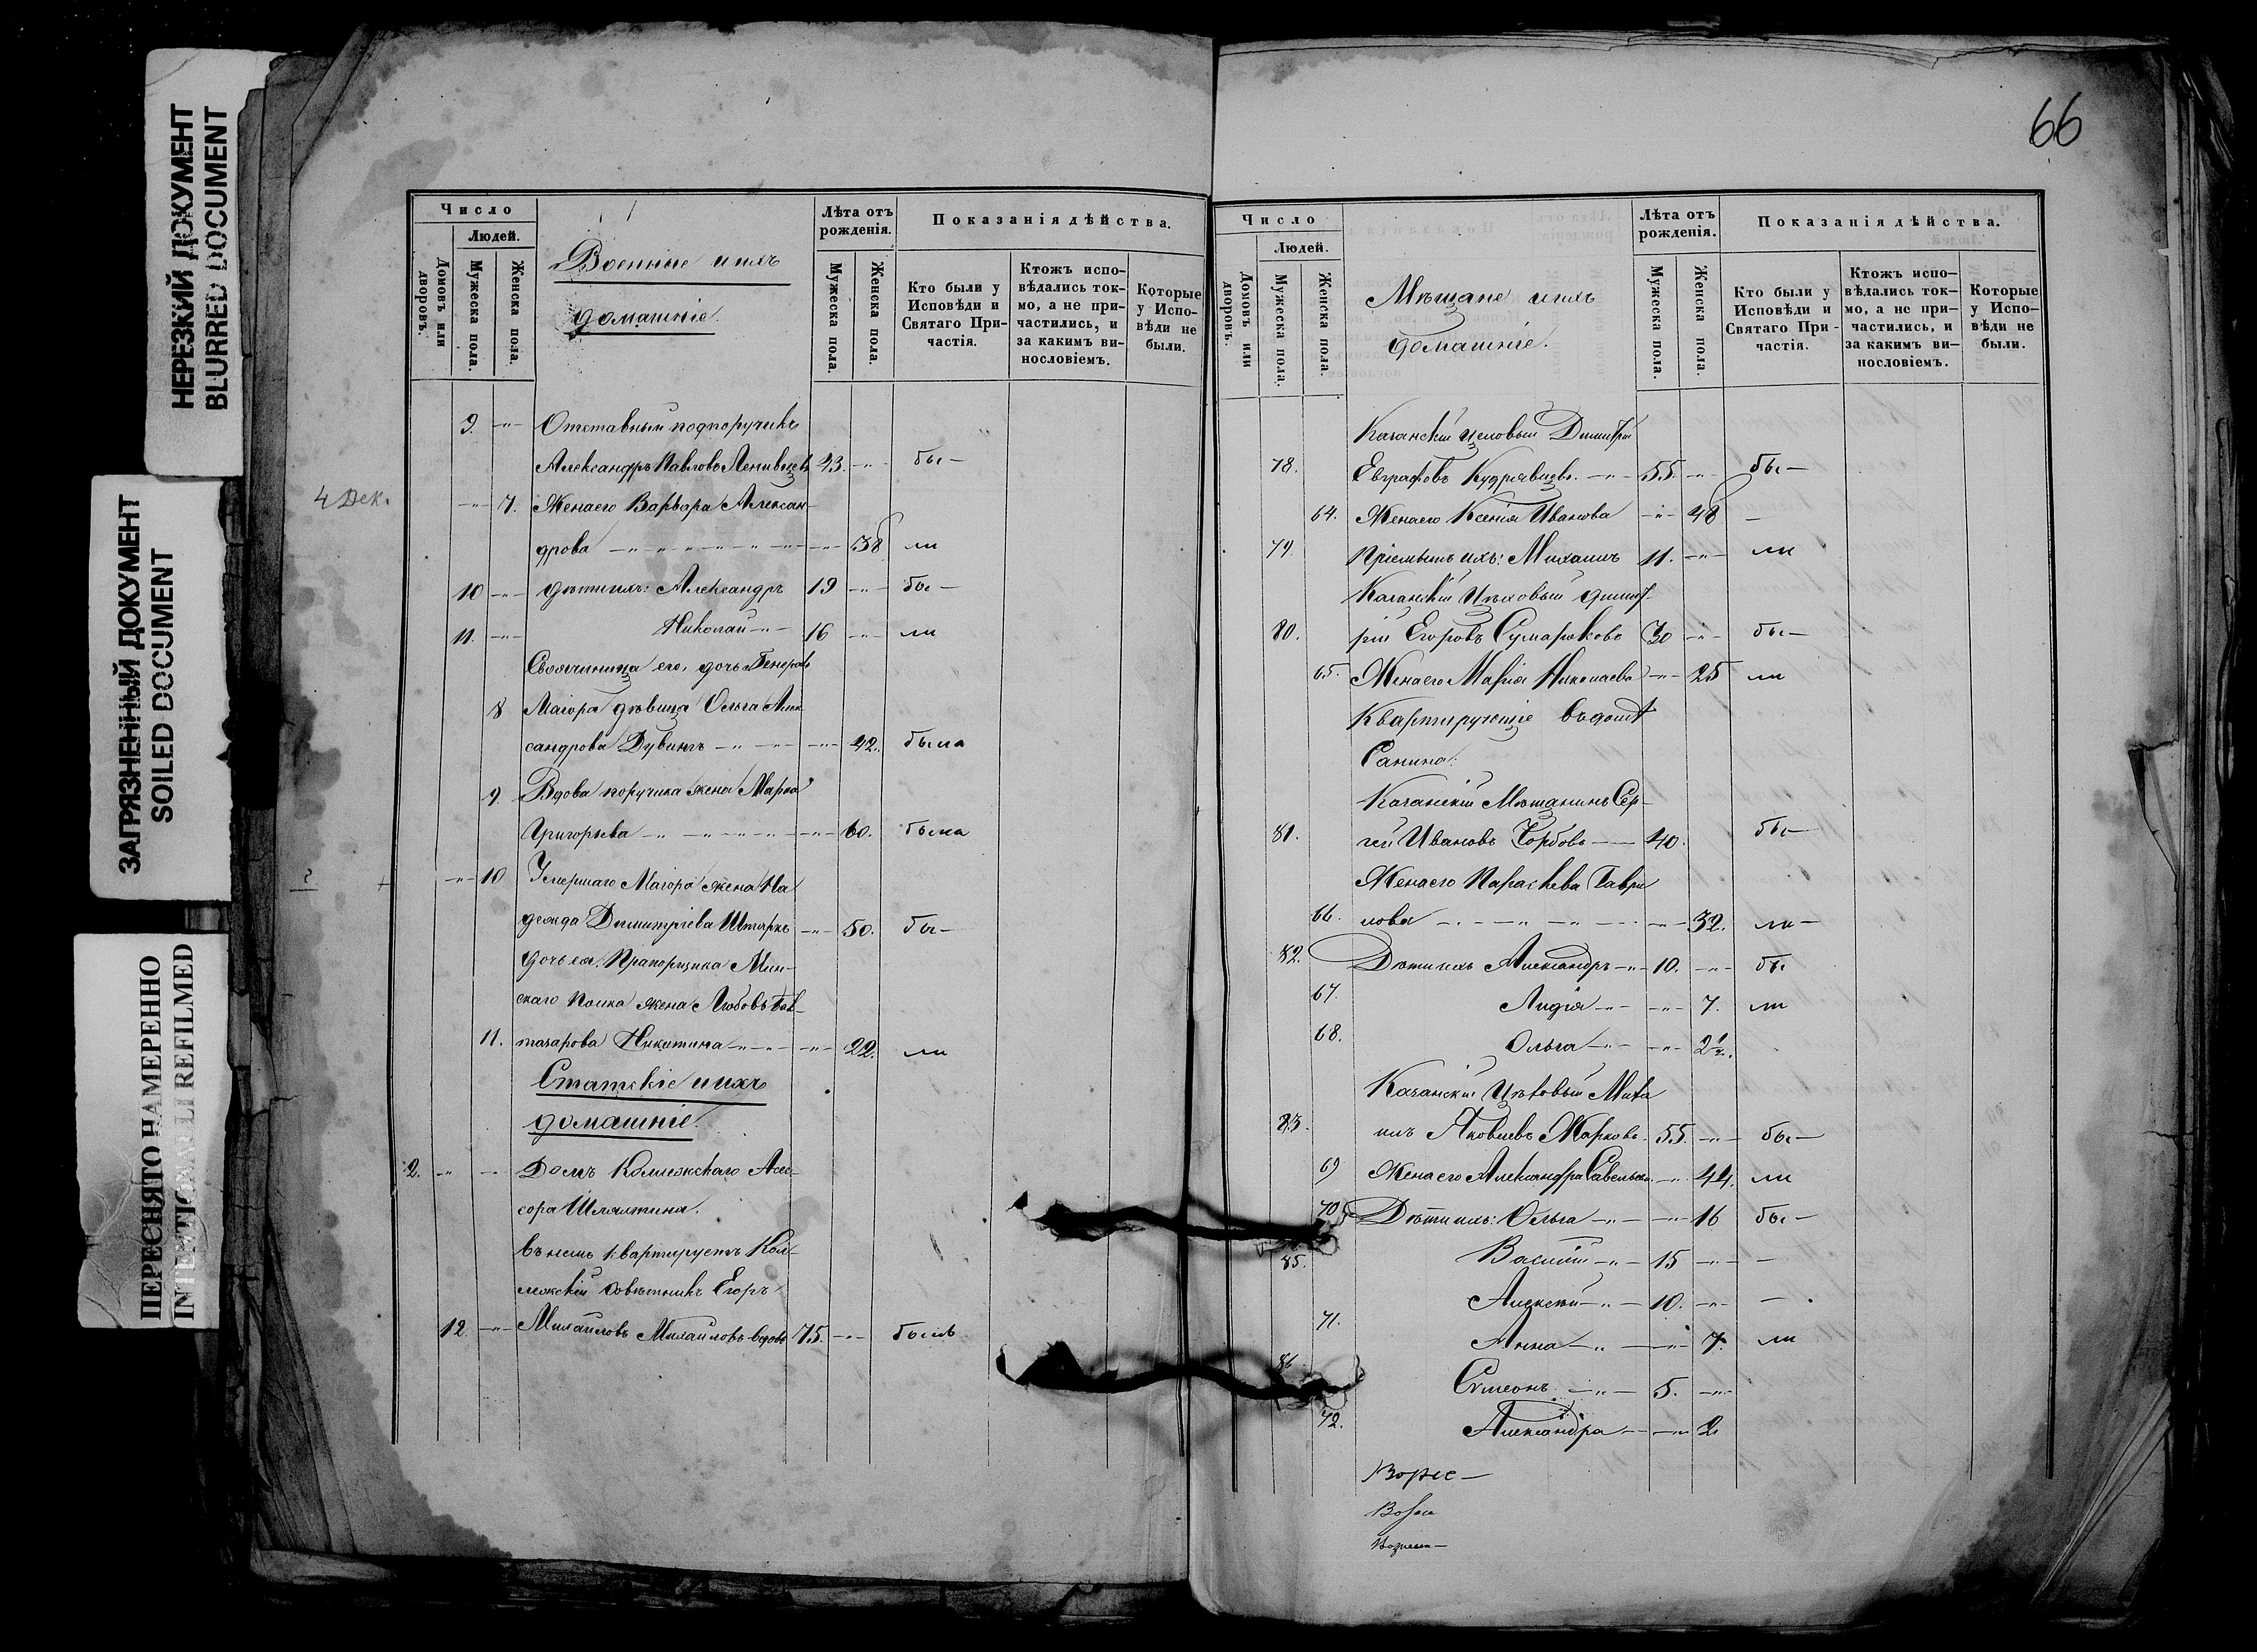 НЕРЕЗКИЙ ДОКУМЕНТ
BLURRED DOCUMENT
ЗАГРЯЗНЕННЫЙ ДОКУМЕНТ
SOILED DOCUMENT
ПЕРЕСНЯТО НАМЕРЕННО
INTENTIONALLI REFILMED
4 Дек.
Число
Людей.
Домовъ или дворовъ.
Мужеска пола.
Женска пола.
Военные и ихъ
домашніе.
Лѣта отъ рожденія.
Мужеска пола.
Женска пола.
Показанія дѣйства.
Кто были у Исповѣди и Святаго Причастія.
Ктожъ исповѣдались токмо, а не причастились, и за какимъ винословіемъ.
Которые у Исповѣди не были.
9. -"- Отставный подпоручикъ
Александръ Павловъ 43. -"- бы-
-"- 7. Жена его Варвара Алексан-
дрова -"- 38 ли
10 -"- Дѣти ихъ: Александръ 19 -"- бы-
11. -"- Николай -"- 16 -"- ли
Своячиница его, дочь Генералъ
8 Маіора дѣвица Ольга Алек
сандрова -"- -"- 42. была
9. Вдова поручика жена Марѳа
Григорьева -"- -"- 60. была
-"- 10 Умершаго Маіора жена На
дежда Димитріева Штаркъ -"- 50. бы-
Дочь ея: Прапорщика Мин-
скаго полка жена Любовь
11. Никитина -"- -"- 22. ли
Статскіе и ихъ
домашніе.
2. -"- -"- Домъ Коллежскаго Асес-
сора
въ немъ квартируетъ Кол-
лежскій Совѣтникъ Егоръ
12 -"- Михаиловъ Михайловъ вдовъ 75. -"- былъ
66
Число
Людей.
Домовъ или дворовъ.
Мужеска пола.
Женска пола.
Мѣщане и ихъ
домашніе.
Лѣта отъ рожденія.
Мужеска пола.
Женска пола.
Показанія дѣйства.
Кто были у Исповѣди и Святаго Причастія.
Ктожъ исповѣдались токмо, а не причастились, и за какимъ винословіемъ.
Которые у Исповѣди не были.
Казанскій цеховый Димитрій
78. Евграфовъ Кудрявцевъ. -"- 55. -"- бы-
64. Жена его Ксенія Иванова -"- 48 -
79. Пріемышъ ихъ: Михаилъ 11. -"- ли
Казанскій Цѣховый Димит-
80. рій Егоровъ Сумароковъ 30 -"- бы-
65. Жена его Марія Николаева -"- 25 ли
Квартирующіе въ домѣ
Санина:
Казанскій Мѣщанинъ Сер-
81. гей Ивановъ 40. бы-
Жена его Параскева Гаври
66. лова -"- -"- 32. ли-
82. Дѣти ихъ Александръ -"- 10. -"- бы
67. Лидія -"- -"- 7. ли
68. Ольга -"- -"- 2½.
Казанскій Цѣховый Миха
83. илъ Яковлевъ Жарковъ. 55. -"- бы-
69 Жена его Александра Савельева -"- 44. ли
70 Дѣти ихъ: Ольга -"- -"- 16 бы-
85. Василій -"- 15 -"- -
Алексѣй -"- 10. -"- -
71. Анна -"- -"- 7. ли
86 Сѷмеонъ -"- 5. -"-
72. Александра -"- 2